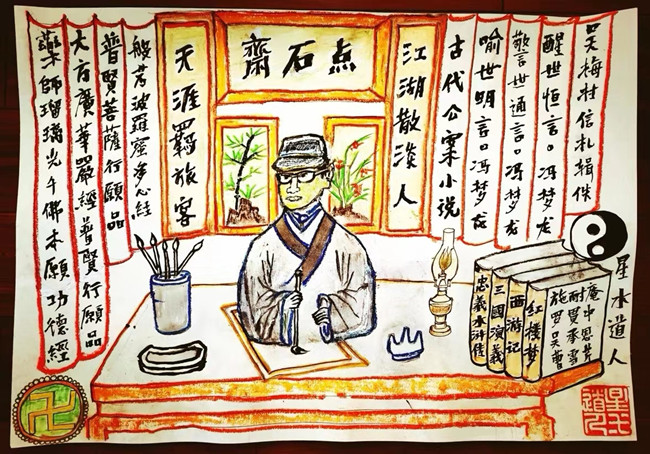 点石齋
江湖散淡人
天涯羈旅客
醒世恒言 冯梦龙
警世通言 冯梦龙
喻世明言 冯梦龙
古代公案小说
般若波羅蜜多心経
普賢菩薩行願品
大方廣華嚴經普賢行願品
藥師瑠璃光佛本願功德經
星水道人
庵中恩芹
耐贯承雪
施罗吴曹
红楼梦
西游记
三國演義
忠義水滸傳
卍